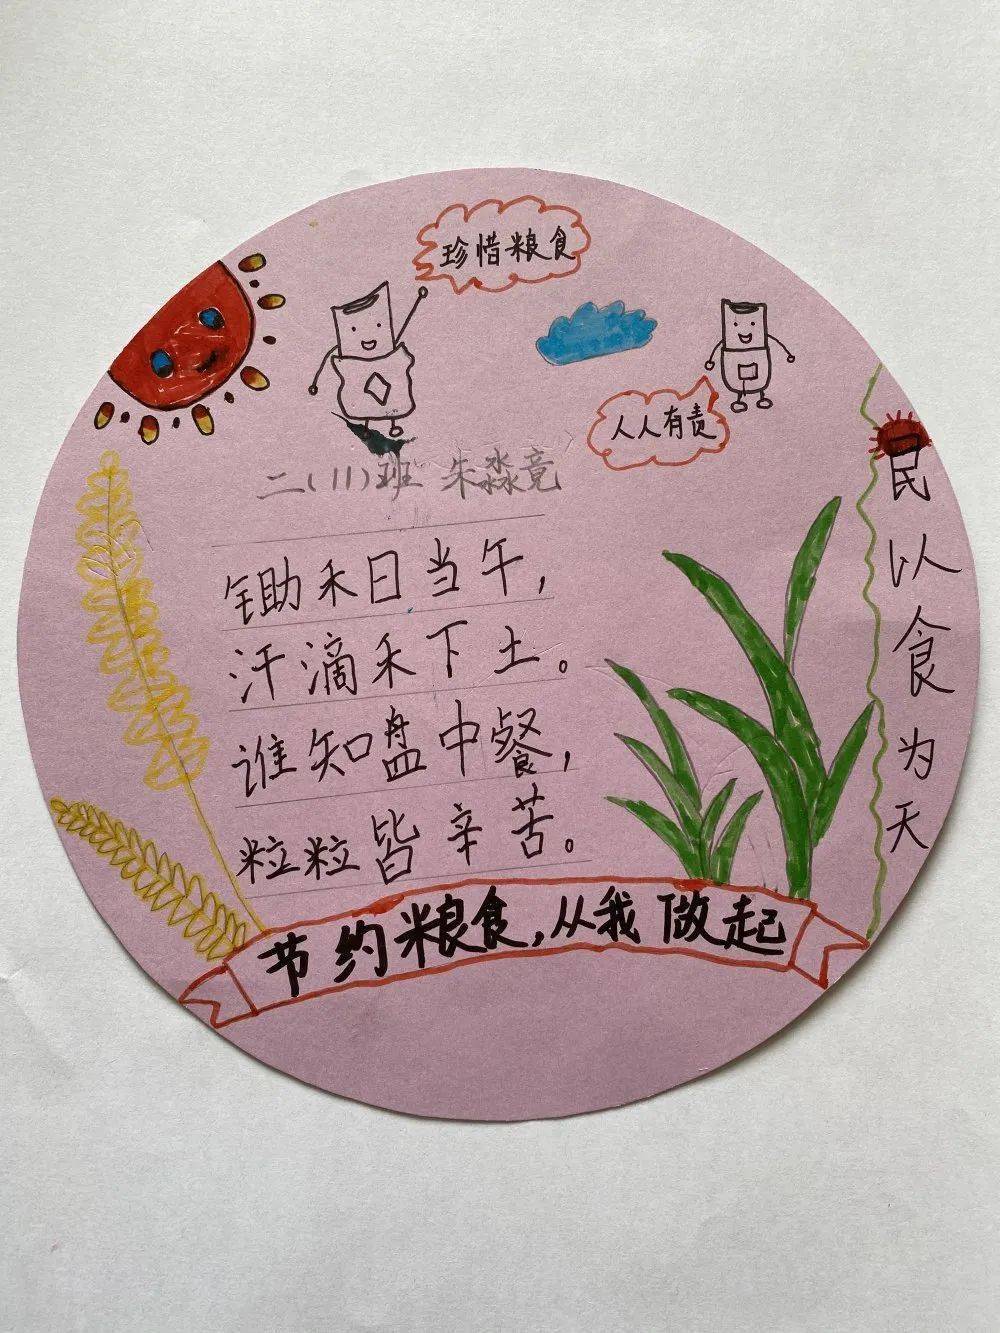 珍惜粮食
人人有责
二(11)班 朱淼竟
锄禾日当午，
汗滴禾下土。
谁知盘中餐，
粒粒皆辛苦。
民以食为天
节约粮食，从我做起